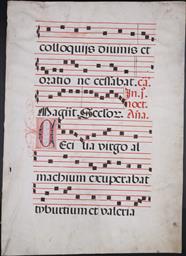 colloquijs diuinis et
oratio ne cessabat. ca.
In .j.
noct.
Magñt. Seclor. Aña.
Ceci lia virgo al
machium exuperabat
tyburtium et valeria